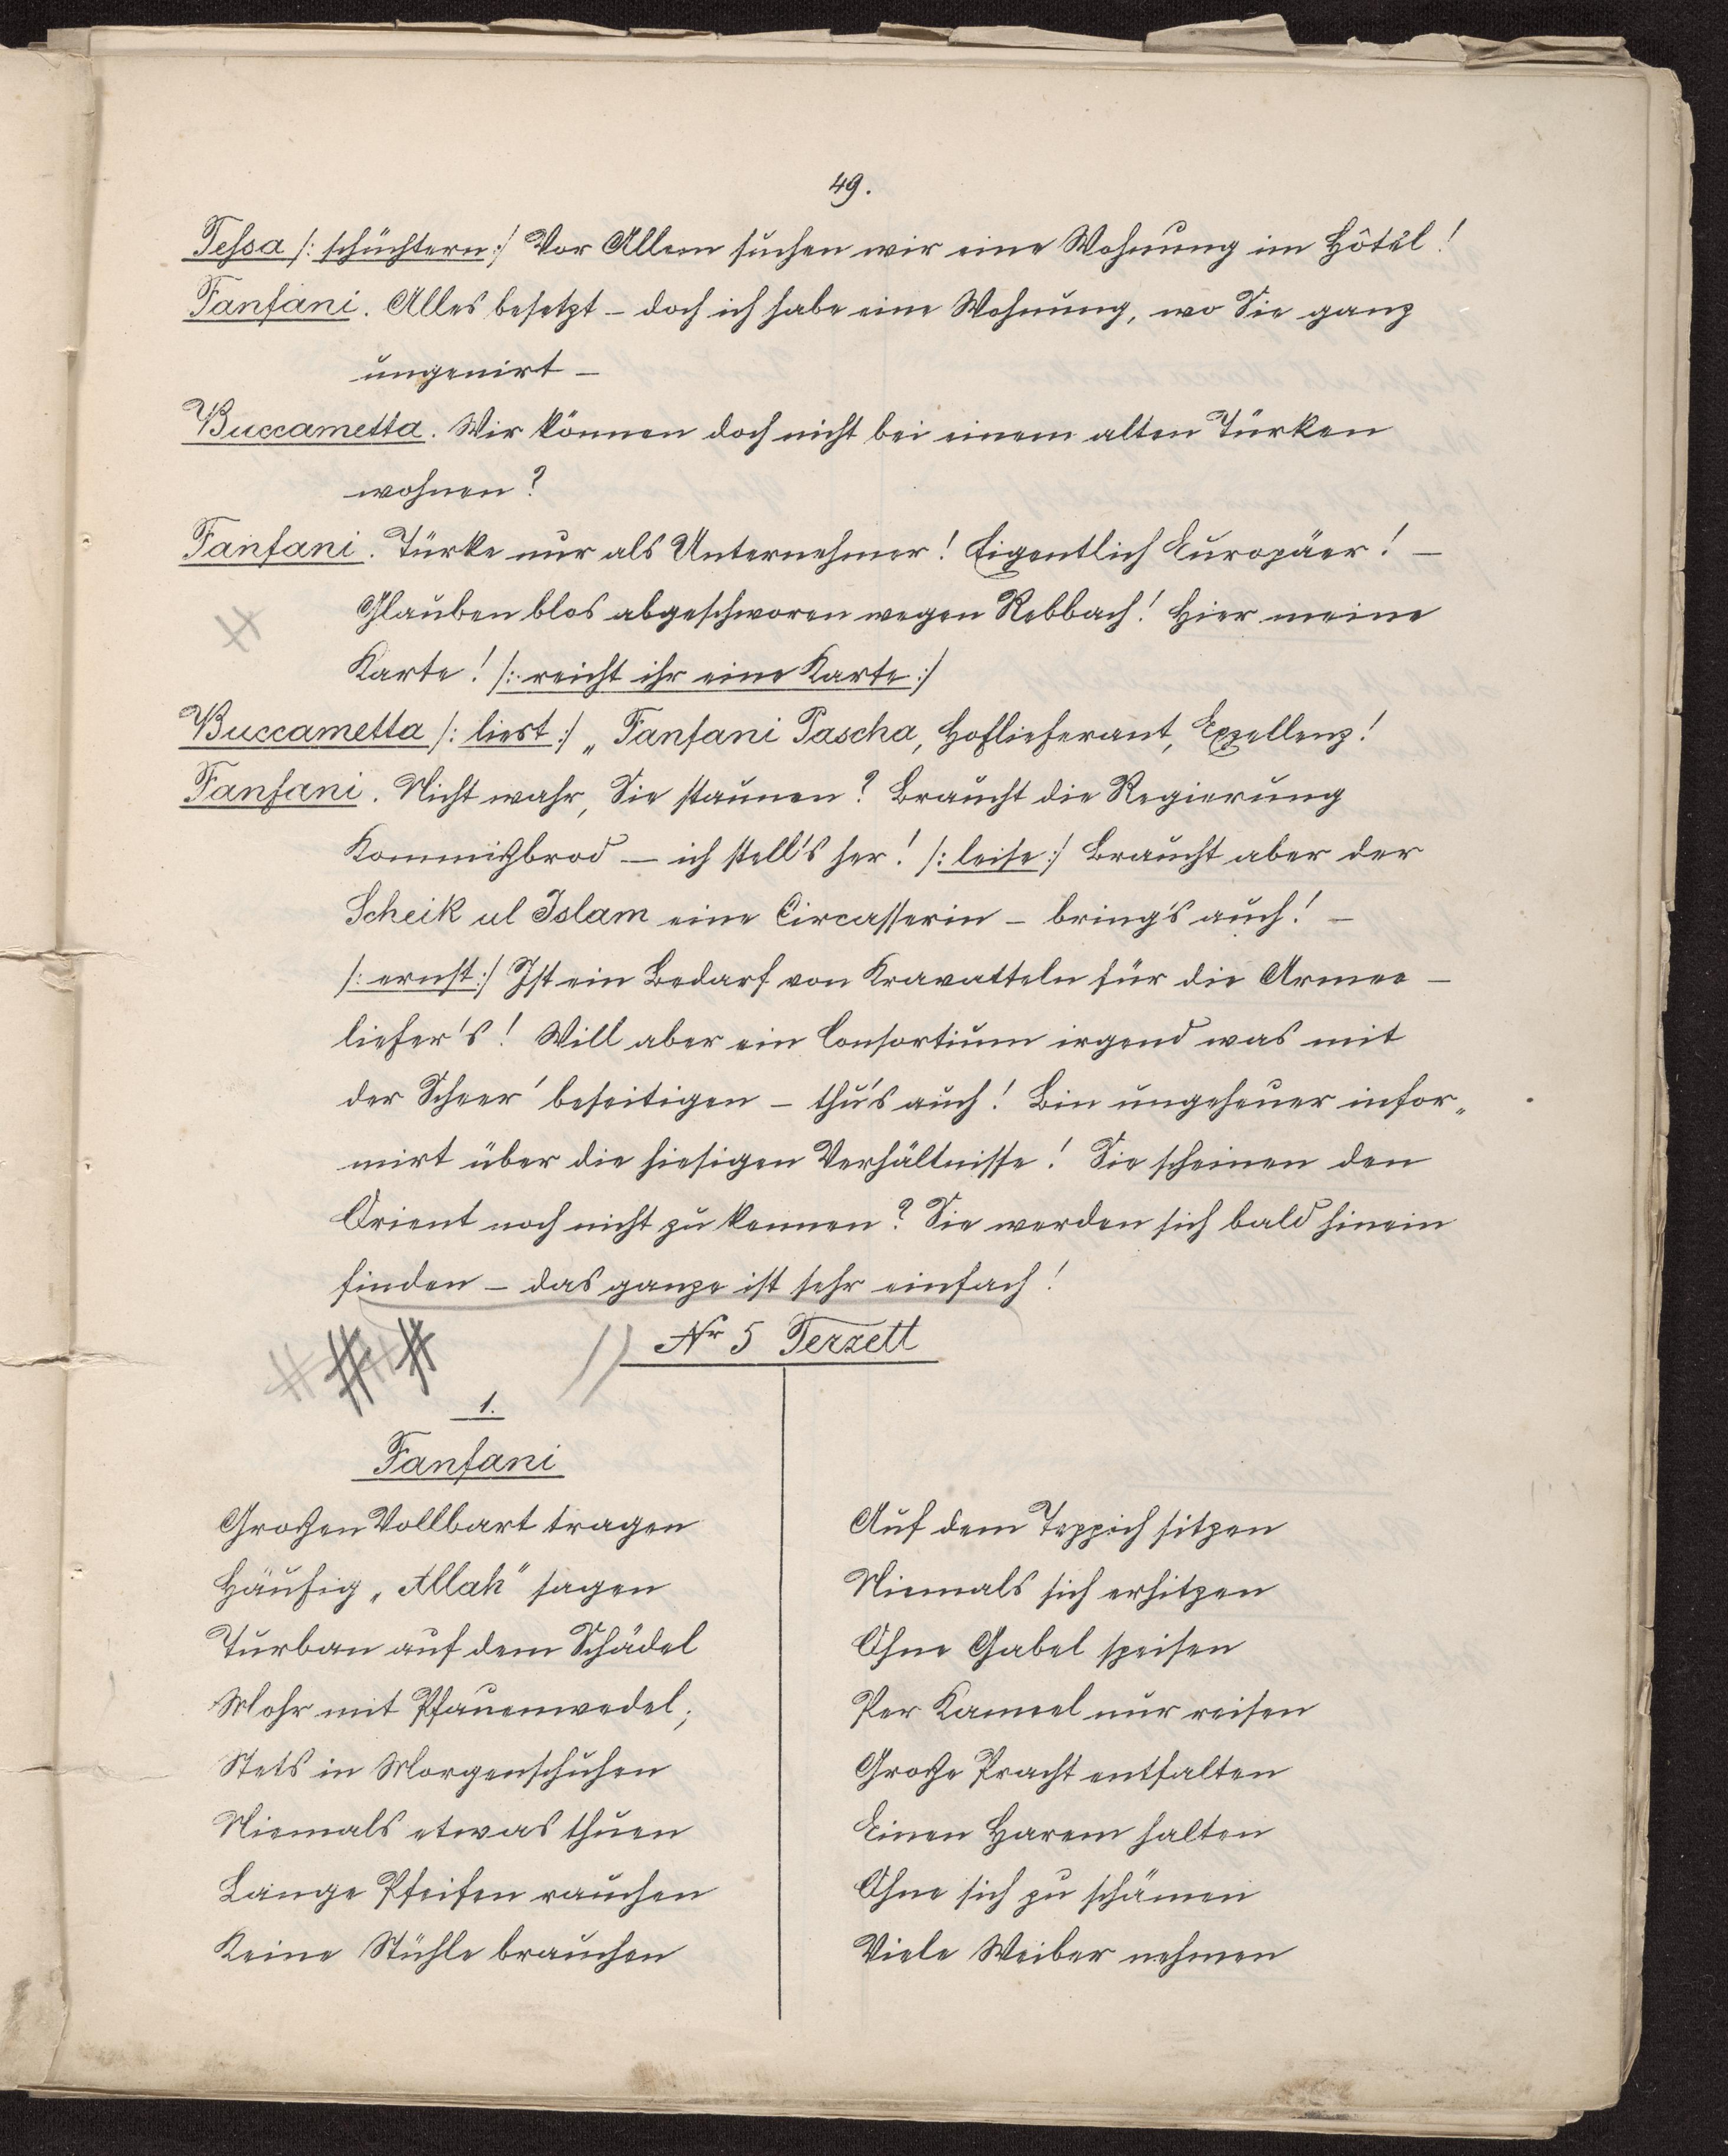 49.
Tessa /: schüchtern :/ Vor Allem suchen wir eine Wohnung im Hôtel!
Fanfani. Alles besetzt – doch ich habe eine Wohnung, wo Sie ganz
ungenirt –
Buccametta. Wir können doch nicht bei einem alten Türken
wohnen?
Fanfani. Türke nur als Unternehmer! Eigentlich Europäer! –
Glauben blos abgeschworen wegen Rebbach! Hier meine
Karte! /: reicht ihr eine Karte :/
Buccametta /: liest :/ „Fanfani Pascha, Hoflieferant, Exzellenz!
Fanfani. Nicht wahr, Sie staunen? Braucht die Regierung
Kommißbrod – ich stell's her! /: leise :/ Braucht aber der
Scheik ul Islam eine Circasserin – bring's auch! –
/: ernst :/ Ist ein Bedarf von Kravatteln für die Armee –
liefer's! Will aber ein Consortium irgend was mit
der Scheer' beseitigen – thu's auch! Bin ungeheuer infor„
mirt über die hiesigen Verhältnisse! Sie scheinen den
Orient noch nicht zu kennen? Sie werden sich bald hinein
finden – das ganze ist sehr einfach!
Nr 5 Terzett
1.
Fanfani
Großen Vollbart tragen
Häufig „Allah" sagen
Turban auf dem Schädel
Mohr mit Pfauenwedel;
Stets in Morgenschuhen
Niemals etwas thuen
Lange Pfeifen rauchen
Keine Stühle brauchen
Auf dem Teppich sitzen
Niemals sich erhitzen
Ohne Gabel speisen
Per Kameel nur reisen
Große Pracht entfalten
Einen Harem halten
Ohne sich zu schämen
Viele Weiber nehmen